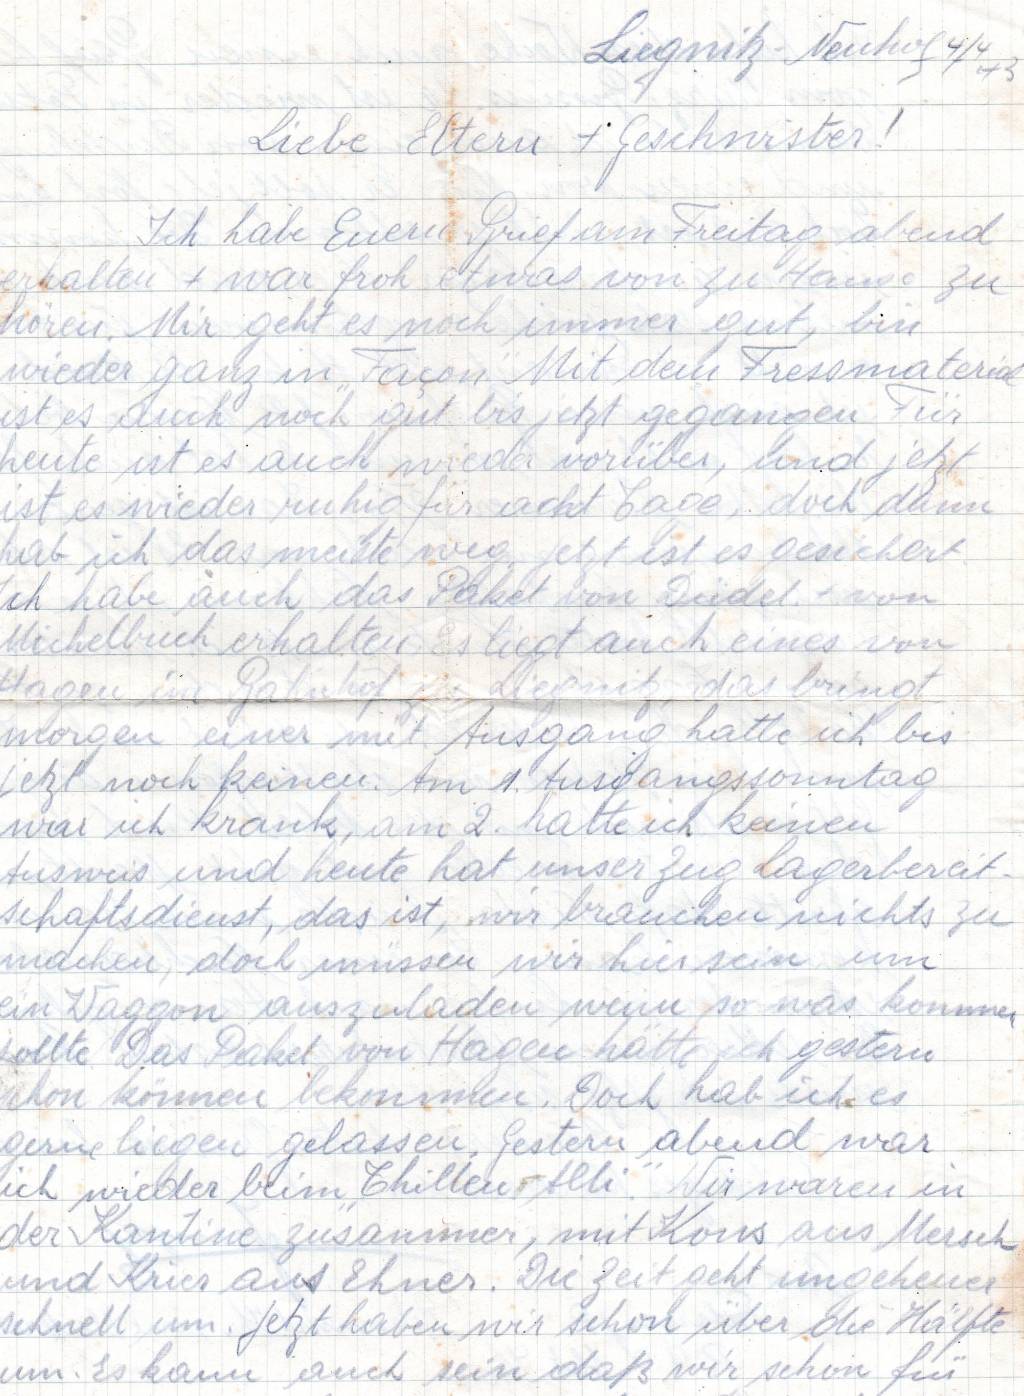 Liegnitz-Neuhof 4/4 43
Liebe Eltern + Geschwister!
Ich habe Euern Brief am Freitag abend
erhalten + war froh etwas von zu Hause zu
hören. Mir geht es noch immer gut, bin
wieder ganz in "Façon" Mit dem Fressmaterial
ist es auch noch gut bis jetzt gegangen Für
heute ist es auch wieder vorüber, Und jetzt
ist es wieder ruhig für acht Tage, doch dann
hab ich das meiste weg, jetzt ist es gesichert.
Ich habe auch das Paket von Düdel. + von
Michelbuch erhalten Es liegt auch eines von
Hagen im Bahnhof Liegnitz, das bringt
morgen einer mit. Ausgang hatte ich bis
jetzt noch keinen. Am 1. Ausgangssonntag
war ich krank, am 2. hatte ich keinen
Ausweis und heute hat unser Zug Lagerbereit-
schaftsdienst, das ist, wir brauchen nichts zu
machen, doch müssen wir hier sein um
ein Waggon auszuladen wenn so was kommen
sollte. Das Paket von Hagen hätte ich gestern
schon können bekommen. Doch hab ich es
gerne liegen gelassen. Gestern abend war
ich wieder beim "Thillen-Alli". Wir waren in
der Kantine zusammen, mit Kons aus Mersch
und Krier aus Ehner. Die Zeit geht ungeheuer
schnell um. Jetzt haben wir schon über die Hälfte
um. Es kann auch sein daß wir schon für